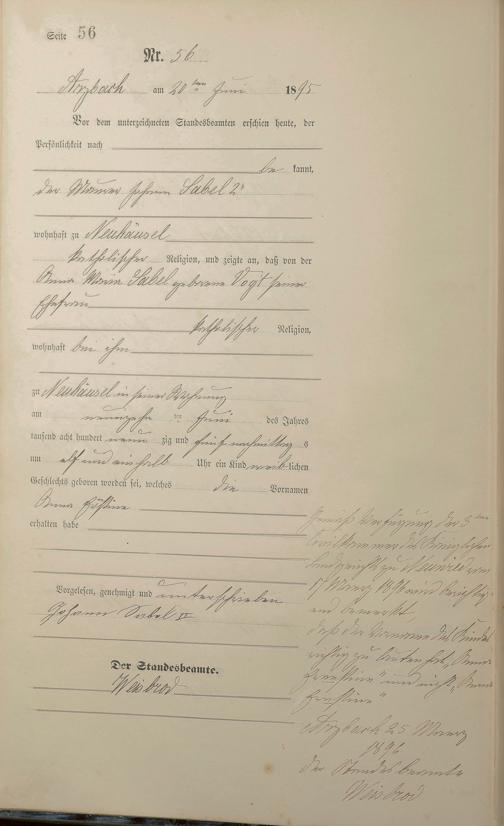 Seite 56
Nr. 56
Arzbach am 20ten Juni 1895
Vor dem unterzeichneten Standesbeamten erschien heute, der
Persönlichkeit nach
bekannt,
der Maurer Johann Sabel 2r
wohnhaft zu Neuhäusel
katholischer Religion, und zeigte an, daß von der
Anna Maria Sabel geborene Vogt seiner
Ehefrau
katholischer Religion,
wohnhaft bei ihm
zu Neuhäusel in seiner Wohnung
am neunzehn ten Juni des Jahres
tausend acht hundert neunzig und fünf nachmittags
um elf und einhalb Uhr ein Kind weiblichen
Geschlechts geboren worden sei, welches die Vornamen
Anna
erhalten habe
Vorgelesen, genehmigt und unterschrieben
Johann Sabel II
Der Standesbeamte.
Weisbrod
Gemäß Verfügung der
Civilkammer des Königlichen
Landgericht zu Neuwied vom
17 März 1896 wird berichtig-
end bemerkt
daß der Vorname des Kindes
richtig zu lauten hat, "Anna
und nicht "Anna
Arzbach 25 Maerz
1896
der Standesbeamte
Weisbrod